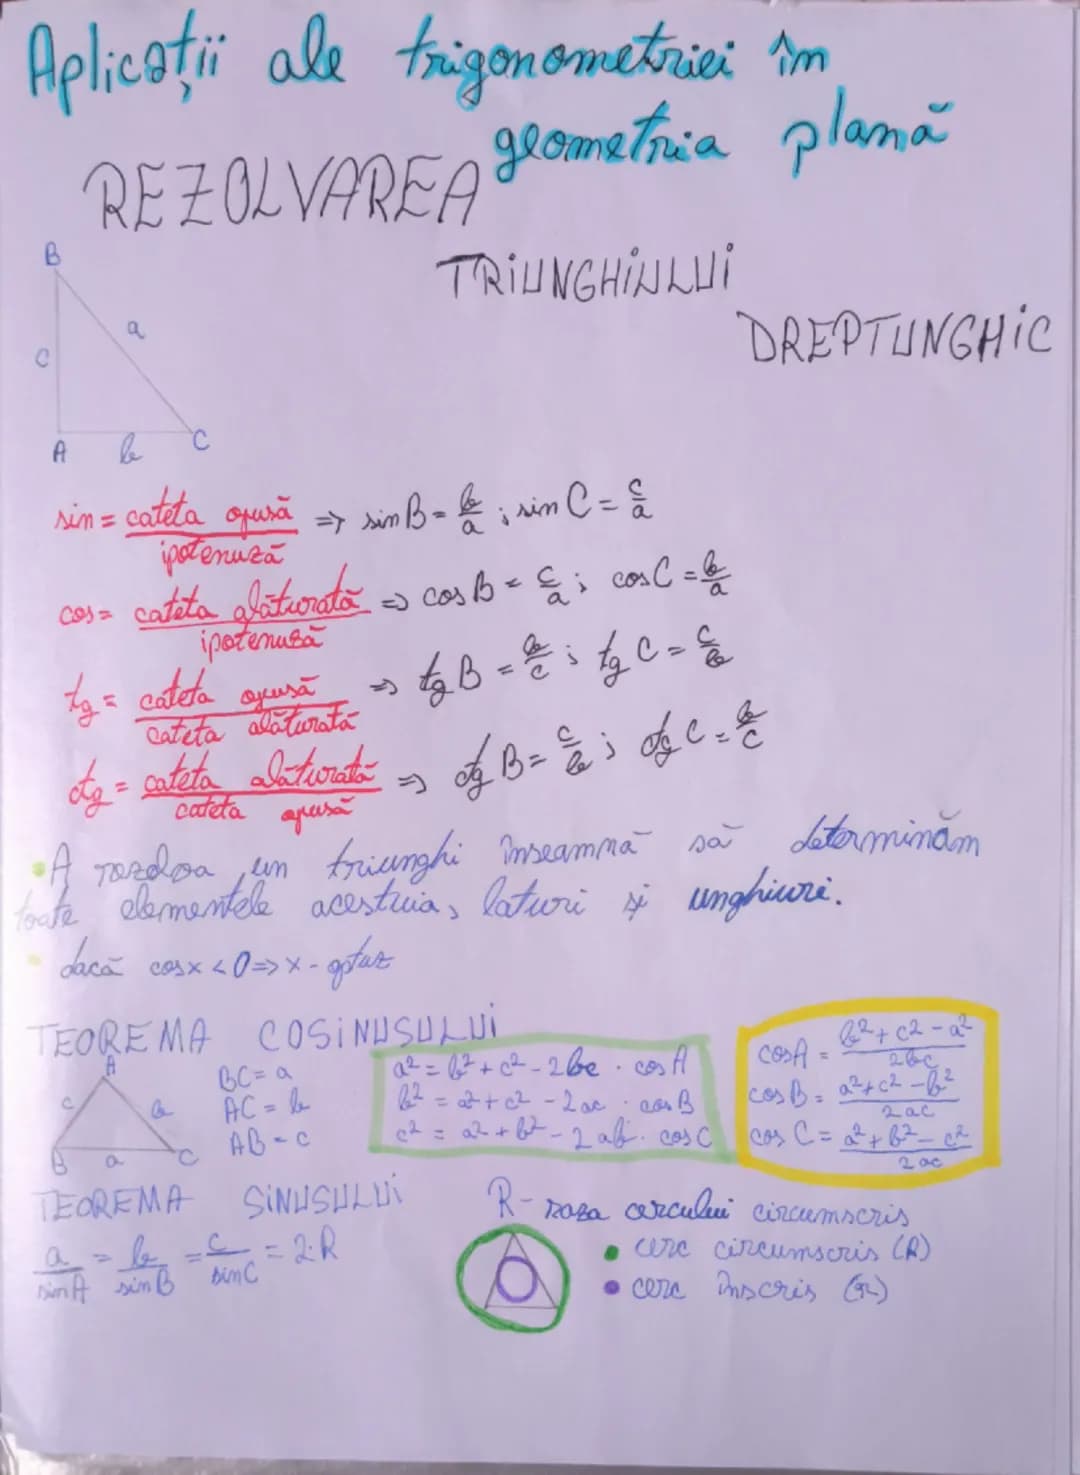 Aplicații ale trigonometriei în
geometria plană
REZOLVAREA
TRIUNGHIULUI
DREPTUNGHIC
B
a
c
A b C
sin = cateta opusă / ipotenuză => sin B = b/a ; sin C = c/a
cos = cateta alăturată / ipotenuză => cos B = c/a ; cos C = b/a
tg = cateta opusă / cateta alăturată => tg B = b/c ; tg C = c/b
ctg = cateta alăturată / cateta opusă => ctg B = c/b ; ctg C = b/c
• A rezolva un triunghi înseamnă să determinăm
toate elementele acestuia, laturi și unghiuri.
• dacă cos x < 0 => x - obtuz
TEOREMA COSINUSULUI
A
c b
B a C
BC = a
AC = b
AB = c
a² = b² + c² - 2bc · cos A
b² = a² + c² - 2ac · cos B
c² = a² + b² - 2ab · cos C
cos A = b² + c² - a² / 2bc
cos B = a² + c² - b² / 2ac
cos C = a² + b² - c² / 2ac
TEOREMA SINUSULUI
a/sin A = b/sin B = c/sin C = 2·R
R - raza cercului circumscris
• cerc circumscris (R)
• cerc înscris (r)